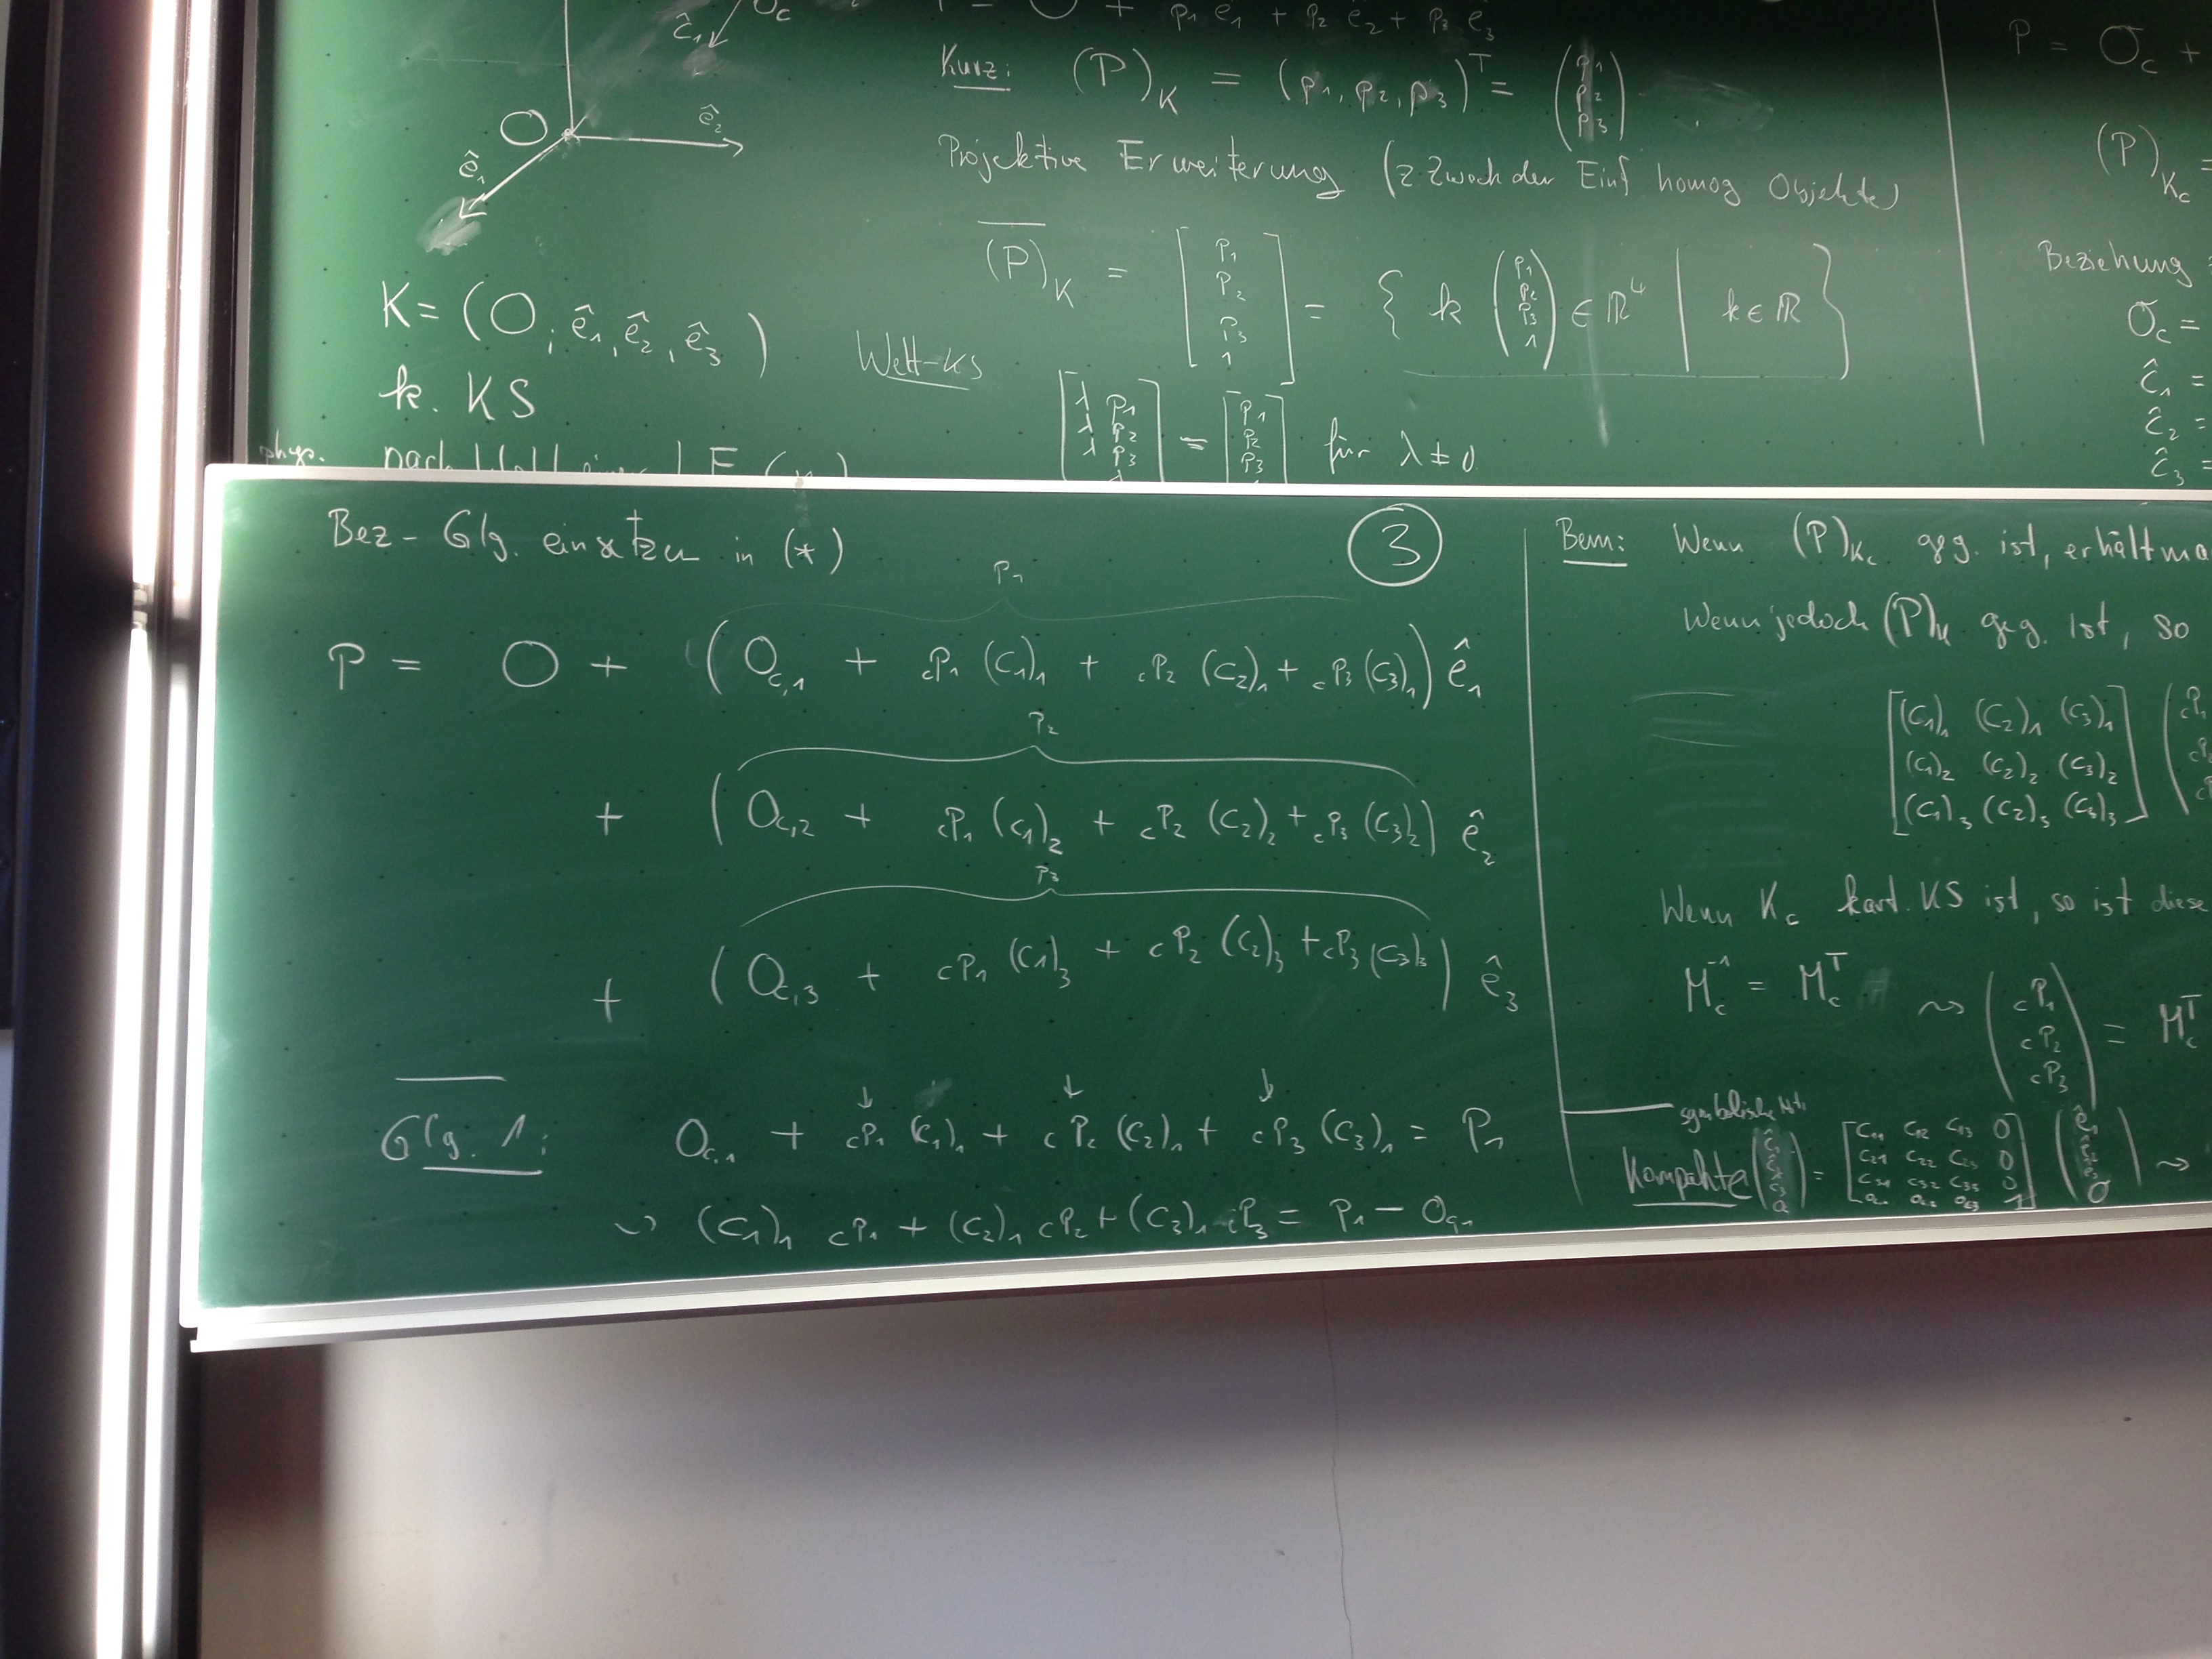 ĉ₁ O_c
P = O + p₁ ê₁ + p₂ ê₂ + p₃ ê₃
Kurz: (P)_K = (p₁, p₂, p₃)ᵀ = (p₁ p₂ p₃)
O ê₂
ê₁
Projektive Erweiterung (z Zweck der Einf homog Objekte)
(P)_K = [p₁ p₂ p₃ 1] = { k (p₁ p₂ p₃ 1) ∈ ℝ⁴ | k ∈ ℝ }
K = (O; ê₁, ê₂, ê₃) Welt-KS
k. KS
[λp₁ λp₂ λp₃ λ] = [p₁ p₂ p₃ 1] für λ ≠ 0
phys. nach
P = O_c +
(P)_Kc =
Beziehung
O_c =
ĉ₁ =
ĉ₂ =
ĉ₃ =
Bez-Glg. einsetzen in (*) ③
p₁
P = O + (O_c,₁ + cP₁ (C₁)₁ + cP₂ (C₂)₁ + cP₃ (C₃)₁) ê₁
p₂
+ (O_c,₂ + cP₁ (C₁)₂ + cP₂ (C₂)₂ + cP₃ (C₃)₂) ê₂
p₃
+ (O_c,₃ + cP₁ (C₁)₃ + cP₂ (C₂)₃ + cP₃ (C₃)₃) ê₃
↓ ↓ ↓
Glg. 1: O_c,₁ + cP₁ (C₁)₁ + cP₂ (C₂)₁ + cP₃ (C₃)₁ = P₁
⤳ (C₁)₁ cP₁ + (C₂)₁ cP₂ + (C₃)₁ cP₃ = P₁ − O_c,₁
Bem: Wenn (P)_Kc geg. ist, erhält ma
Wenn jedoch (P)_K geg. ist, so
[(C₁)₁ (C₂)₁ (C₃)₁] (cP₁
[(C₁)₂ (C₂)₂ (C₃)₂] cP₂
[(C₁)₃ (C₂)₃ (C₃)₃] cP
Wenn K_c kart. KS ist, so ist diese
M_c⁻¹ = M_cᵀ ⤳ (cP₁ cP₂ cP₃) = M_cᵀ
symbolische
Kompakte (ĉ₁ ĉ₂ ĉ₃ O_c) = [c₁₁ c₁₂ c₁₃ 0 c₂₁ c₂₂ c₂₃ 0 c₃₁ c₃₂ c₃₃ 0 o_c₁ o_c₂ o_c₃ 1] (ê₁ ê₂ ê₃ O) ⤳